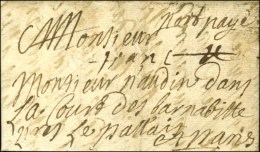 port payé
Monsieur
Monsieur naudin dans
La Court des barnabitte
pres Le pallais
a paris